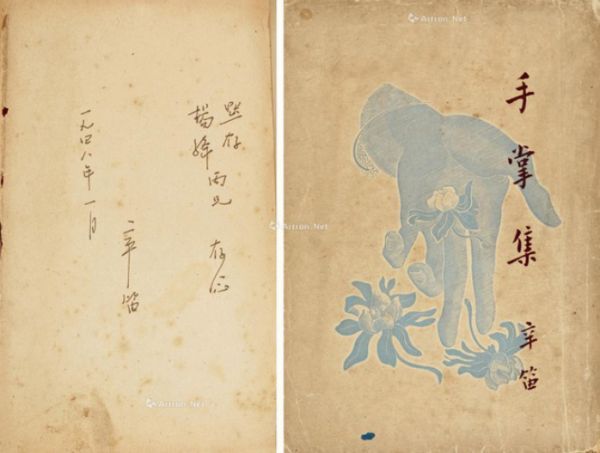 默存
楊絳 两兄 存正
辛笛
一九四八年一月
手掌集 辛笛
Artron.Net
Artron.Net
Artron.Net